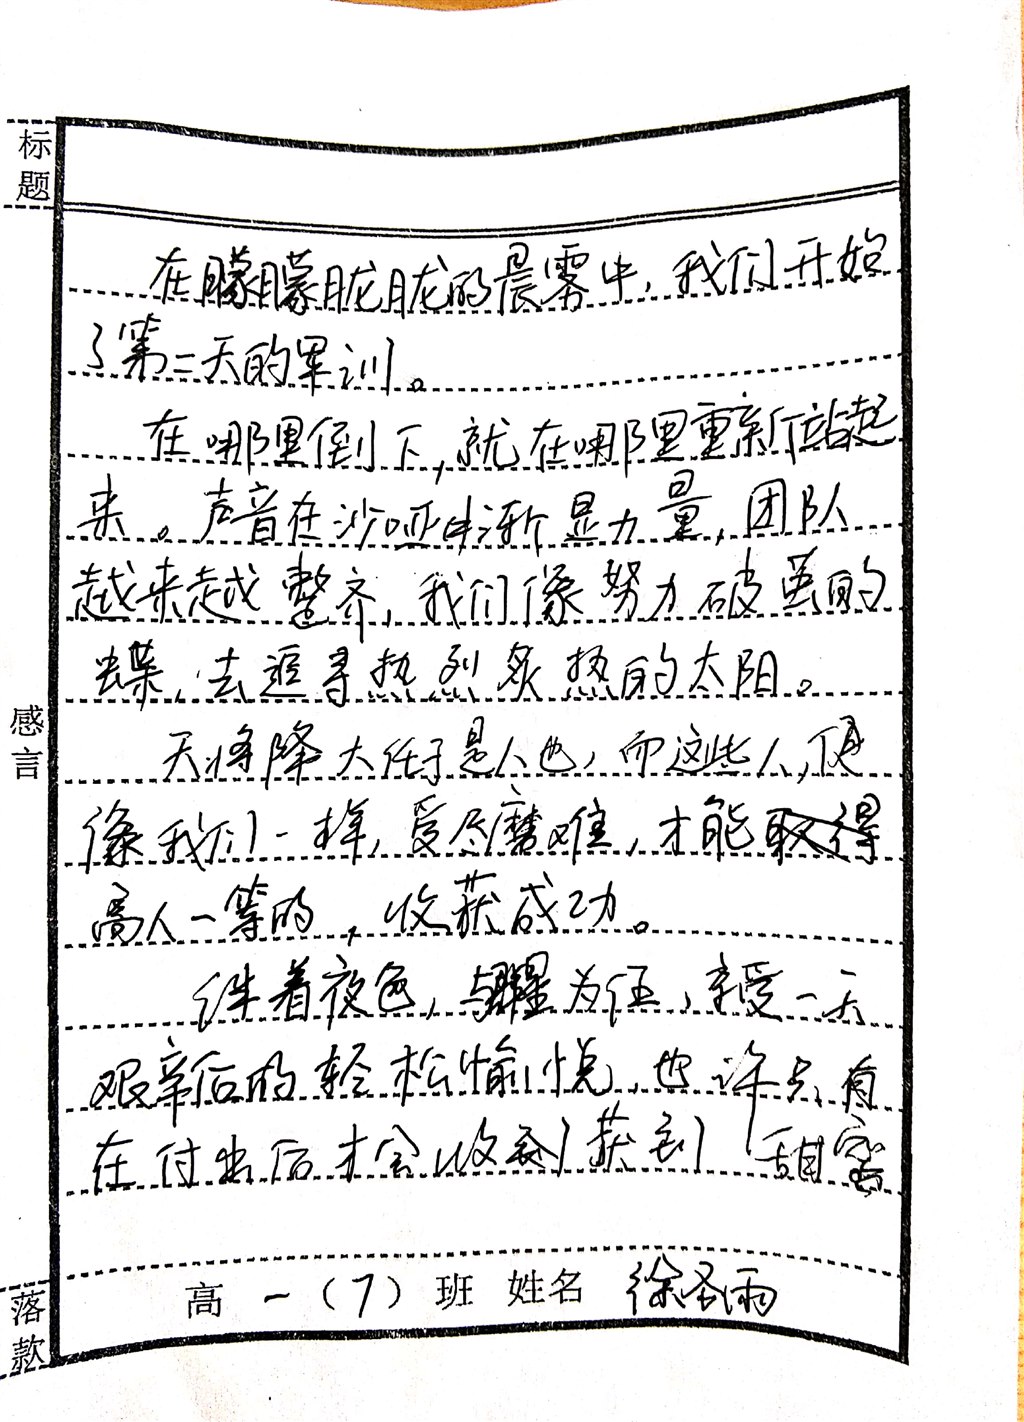 标题
在朦朦胧胧的晨雾中，我们开始
了第二天的军训。
在哪里倒下，就在哪里重新站起
来。声音在沙哑中渐显力量，团队
越来越整齐，我们像努力破茧的
蝶，去追寻热烈炙热的太阳。
感言
天将降大任于是人也，而这些人，便
像我们一样，受尽磨难，才能取得
高人一等的，收获成功。
伴着夜色，与星为伍，享受一天
艰辛后的轻松愉悦，也许只有
在付出后才会收获到甜蜜
落款
高一（7）班 姓名 徐圣雨